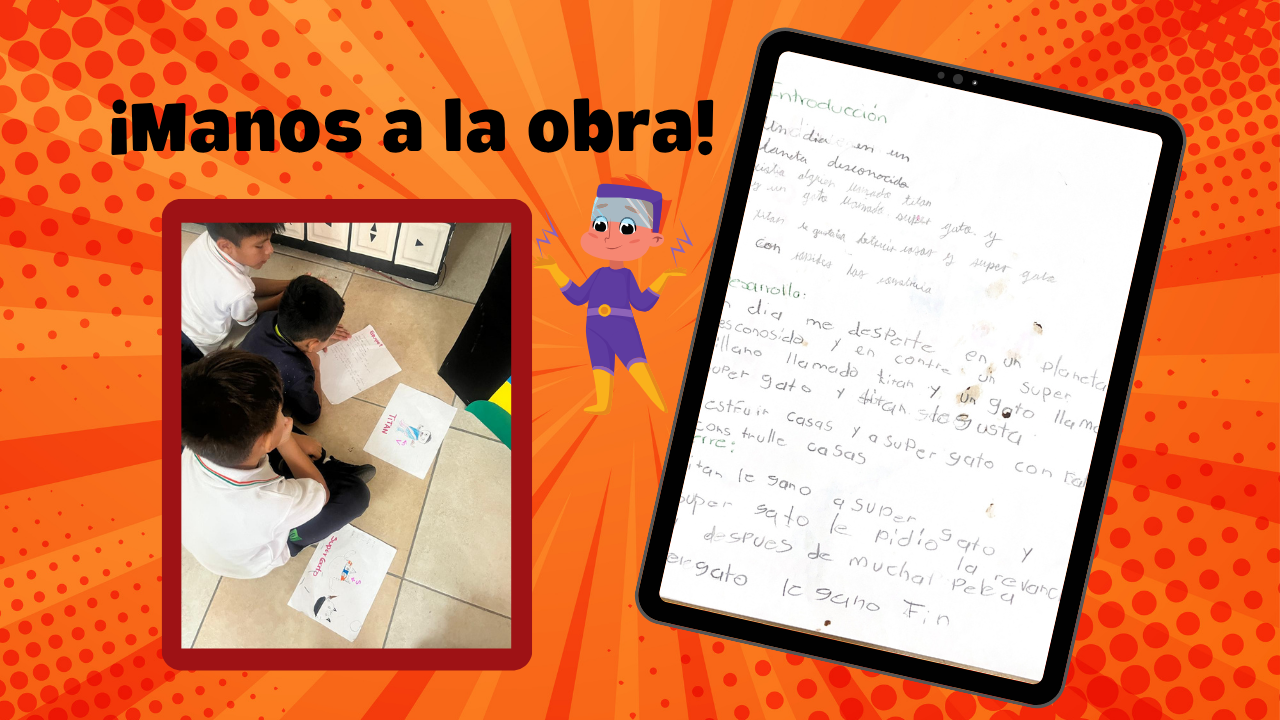 ¡Manos a la obra!
TITAN
Super Gato
Introducción
Un dia en un
planeta desconocido
alguien llamado titan
y un gato llamado super gato y
titan le gustaba destruir casas y super gato
con las construia
esarrollo:
n dia me desperte en un planeta
esconosido y en contre un super
illano llamado titan y un gato llama
uper gato y titan le gusta
estruir casas y a super gato con
cons trulle casas
rre:
itan le gano a super gato y
super gato le pidio la revanc
despues de mucha Pelea
er gato le gano Fin